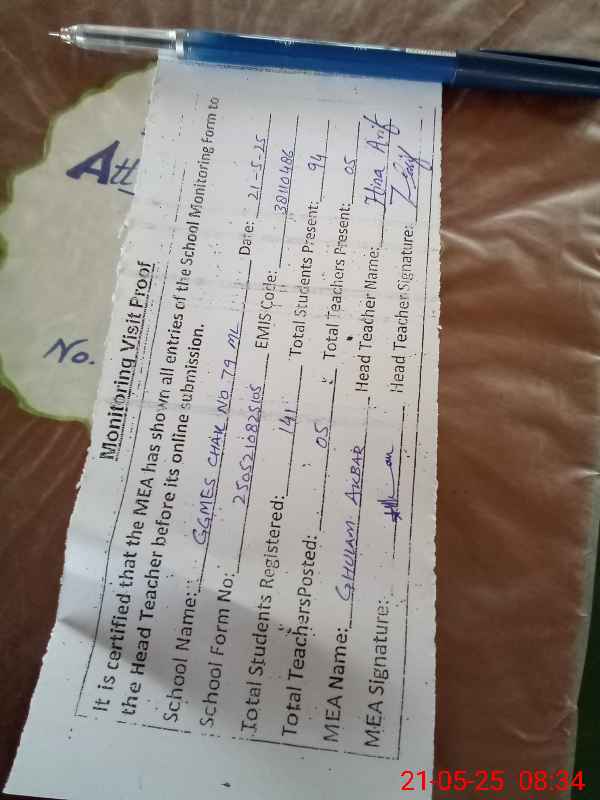 Monitoring Visit Proof
It is certified that the MEA has shown all entries of the School Monitoring Form to
the Head Teacher before its online submission.
School Name: GGMES CHAK NO 79 ML Date: 21-5-25
School Form No: 2505210825105 EMIS Code: 38110486
Total Students Registered: 141 Total Students Present: 94
Total TeachersPosted: 05 Total Teachers Present: 05
MEA Name: GHULAM AKBAR Head Teacher Name: Hina Arif
MEA Signature: Head Teacher Signature:
No.
21-05-25 08:34